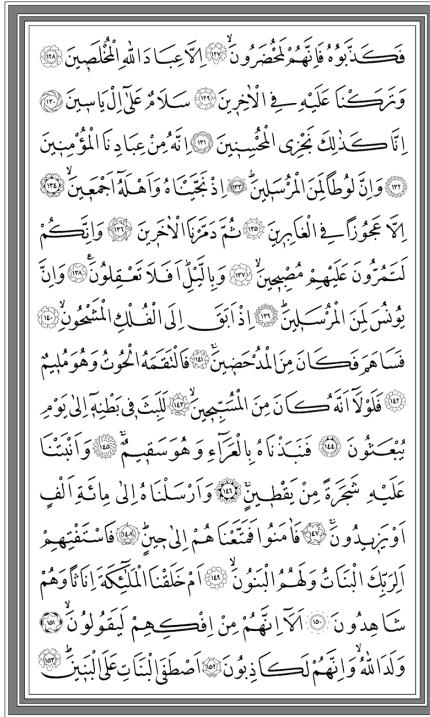 فَكَذَّبُوهُ فَاِنَّهُمْ لَمُحْضَرُونَۙ ﴿١٢٧﴾ اِلَّا عِبَادَ اللّٰهِ الْمُخْلَصٖينَ ﴿١٢٨﴾
وَتَرَكْنَا عَلَيْهِ فِي الْاٰخِرٖينَۙ ﴿١٢٩﴾ سَلَامٌ عَلٰٓى اِلْ يَاسٖينَ ﴿١٣٠﴾
اِنَّا كَذٰلِكَ نَجْزِي الْمُحْسِنٖينَ ﴿١٣١﴾ اِنَّهُ مِنْ عِبَادِنَا الْمُؤْمِنٖينَ
﴿١٣٢﴾ وَاِنَّ لُوطاً لَمِنَ الْمُرْسَلٖينَۜ ﴿١٣٣﴾ اِذْ نَجَّيْنَاهُ وَاَهْلَهُٓ اَجْمَعٖينَۙ ﴿١٣٤﴾
اِلَّا عَجُوزاً فِي الْغَابِرٖينَ ﴿١٣٥﴾ ثُمَّ دَمَّرْنَا الْاٰخَرٖينَ ﴿١٣٦﴾ وَاِنَّكُمْ
لَتَمُرُّونَ عَلَيْهِمْ مُصْبِحٖينَۙ ﴿١٣٧﴾ وَبِالَّيْلِۜ اَفَلَا تَعْقِلُونَ۟ ﴿١٣٨﴾ وَاِنَّ
يُونُسَ لَمِنَ الْمُرْسَلٖينَۜ ﴿١٣٩﴾ اِذْ اَبَقَ اِلَى الْفُلْكِ الْمَشْحُونِۙ ﴿١٤٠﴾
فَسَاهَمَ فَكَانَ مِنَ الْمُدْحَضٖينَۚ ﴿١٤١﴾ فَالْتَقَمَهُ الْحُوتُ وَهُوَ مُلٖيمٌ
﴿١٤٢﴾ فَلَوْلَٓا اَنَّهُ كَانَ مِنَ الْمُسَبِّحٖينَۙ ﴿١٤٣﴾ لَلَبِثَ فٖي بَطْنِهٖٓ اِلٰى يَوْمِ
يُبْعَثُونَ ﴿١٤٤﴾ فَنَبَذْنَاهُ بِالْعَرَٓاءِ وَهُوَ سَقٖيمٌۚ ﴿١٤٥﴾ وَاَنْبَتْنَا
عَلَيْهِ شَجَرَةً مِنْ يَقْطٖينٍۚ ﴿١٤٦﴾ وَاَرْسَلْنَاهُ اِلٰى مِائَةِ اَلْفٍ
اَوْ يَزٖيدُونَۚ ﴿١٤٧﴾ فَاٰمَنُوا فَمَتَّعْنَاهُمْ اِلٰى حٖينٍۜ ﴿١٤٨﴾ فَاسْتَفْتِهِمْ
اَلِرَبِّكَ الْبَنَاتُ وَلَهُمُ الْبَنُونَۙ ﴿١٤٩﴾ اَمْ خَلَقْنَا الْمَلٰٓئِكَةَ اِنَاثاً وَهُمْ
شَاهِدُونَ ﴿١٥٠﴾ اَلَٓا اِنَّهُمْ مِنْ اِفْكِهِمْ لَيَقُولُونَۙ ﴿١٥١﴾
وَلَدَ اللّٰهُۙ وَاِنَّهُمْ لَكَاذِبُونَ ﴿١٥٢﴾ اَصْطَفَى الْبَنَاتِ عَلَى الْبَنٖينَۜ ﴿١٥٣﴾